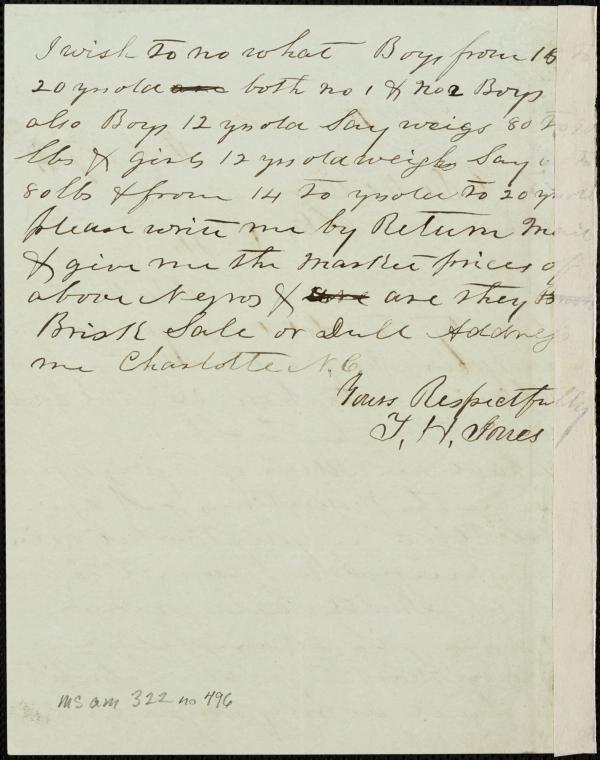 I wish to no what Boys from 16
20 yrs old are both no 1 & no 2 Boys
also Boys 12 yrs old Say weigs 80
lbs & girls 12 yrs old weighs Say
80 lbs & from 14 to yrs old to 20 yrs
please write me by Return mail
& give me the market prices of
above Negros & are are they
Brisk Sale or Dull Address
me Charlotte N.C.
Yours Respectfully
T. W. Jones
ms am 322 no 496